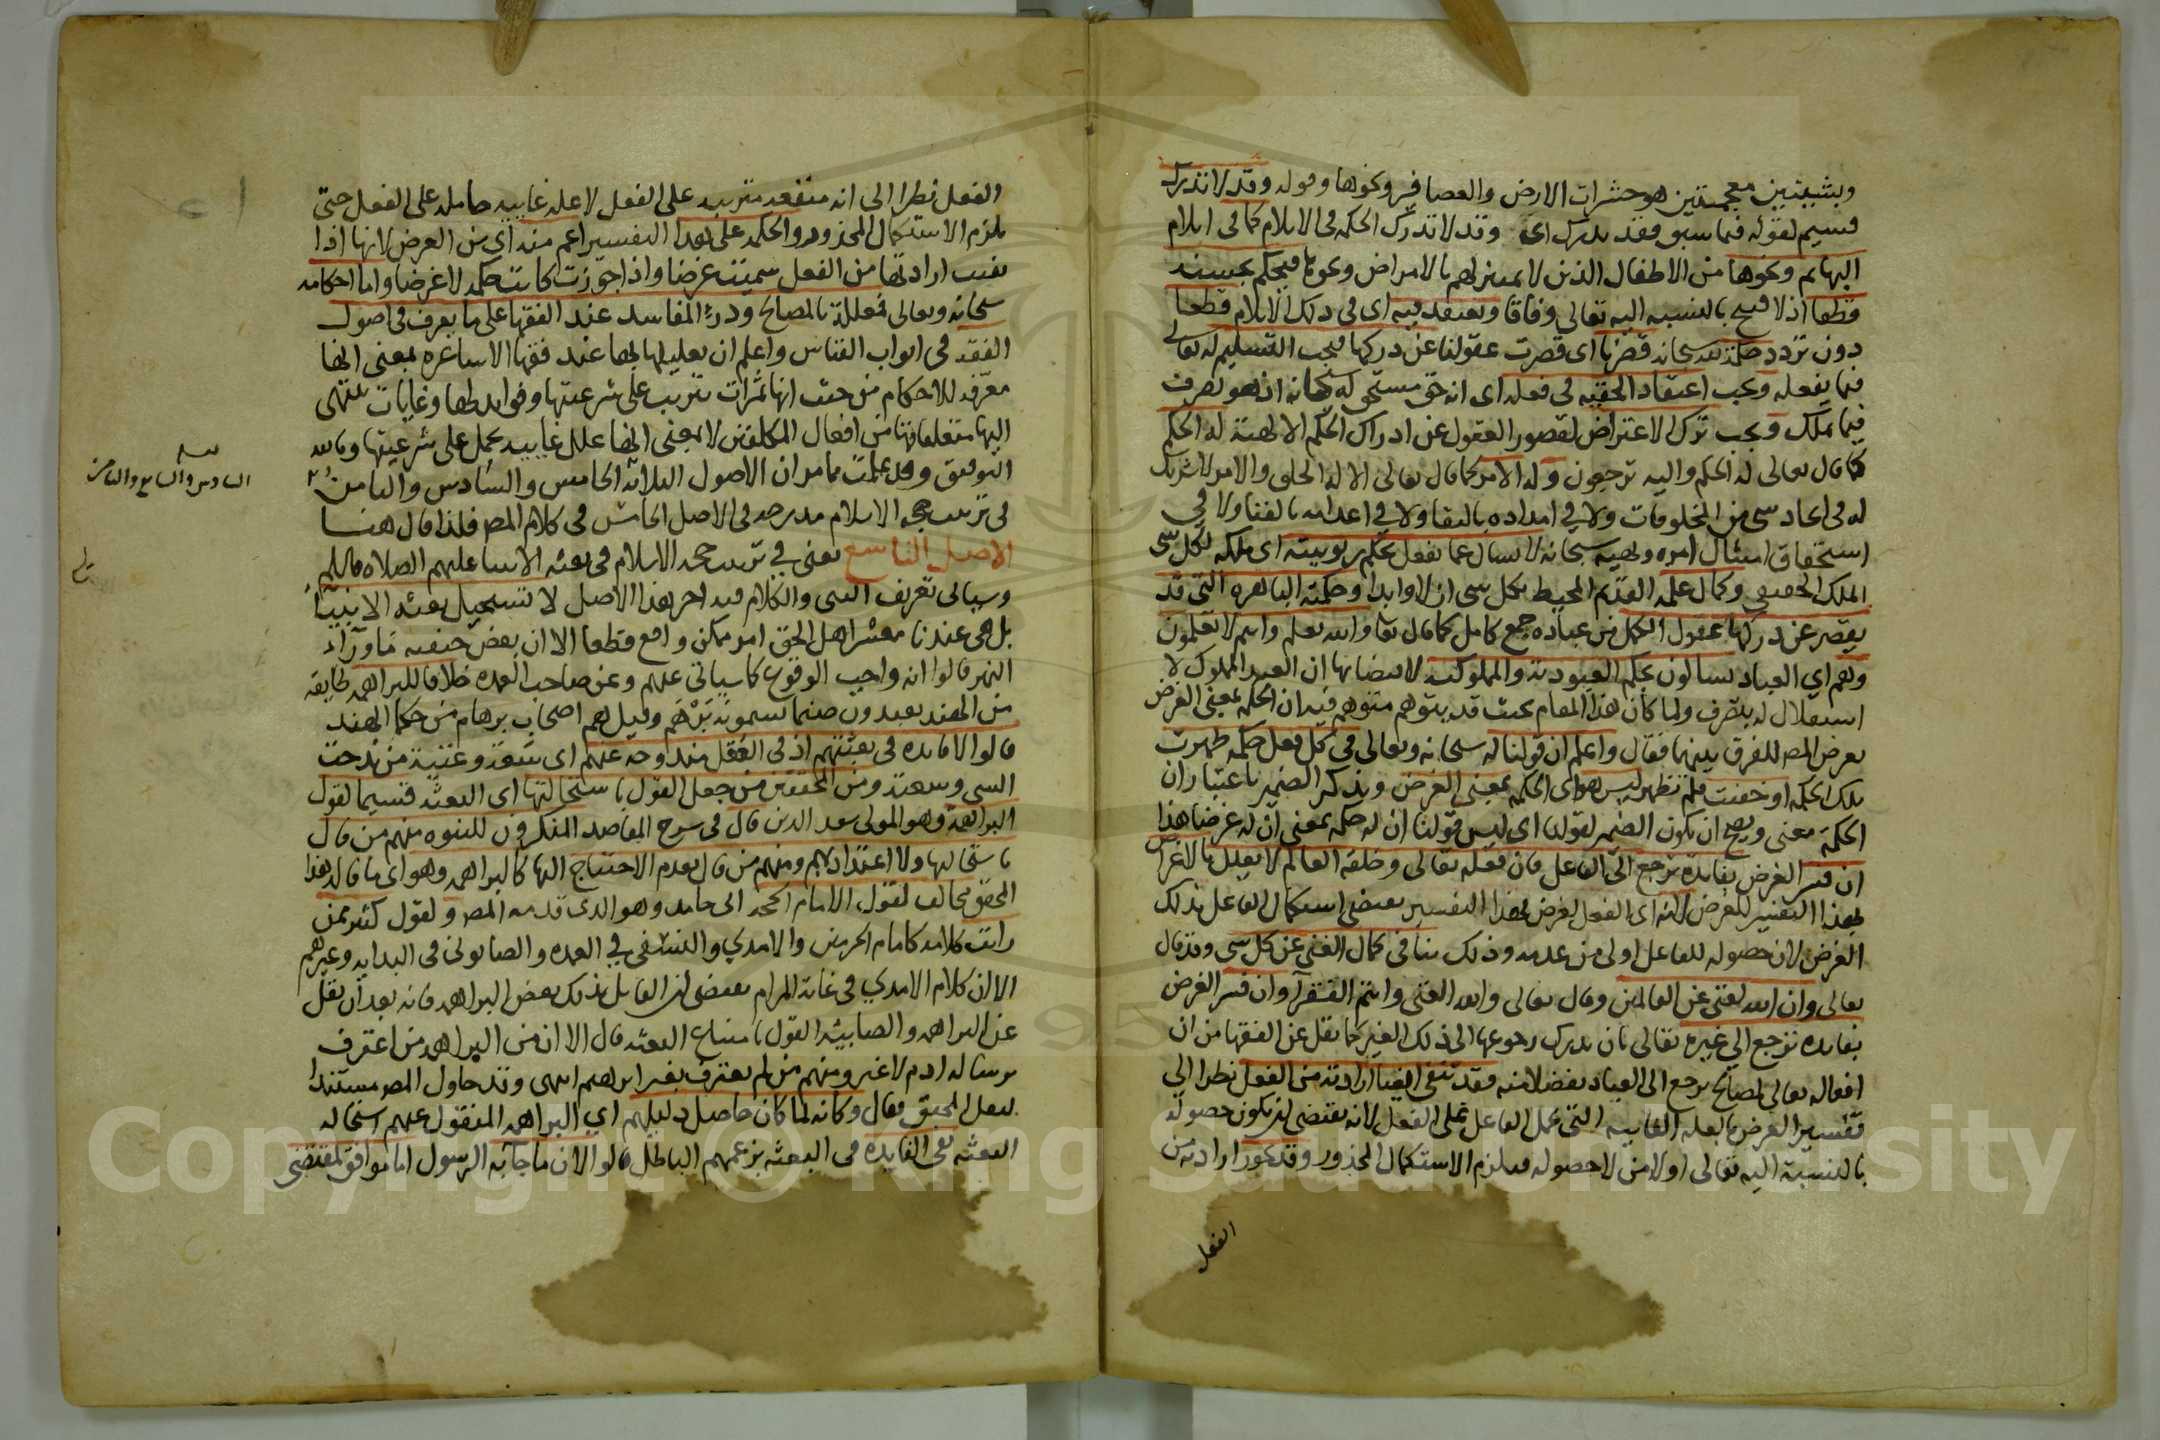 وبشينين معجمتين هو حشرات الارض والعصافير ونحوها وقوله وقد لا تدرك
قسيم لقوله فيما سبق فقد يدرك اي وقد لا تدرك الحكمة في الايلام كما في ايلام
البهايم ونحوها من الاطفال الذين لا تمييز لهم بالامراض ونحوها فيحكم بحسنه
قطعا اذ لا قبح بالنسبه اليه تعالي وفاقا ويعتقد فيه اي في ذلك الايلام قطعا
دون تردد حكمة لله سبحانه قصرنا اي قصرت عقولنا عن دركها فيجب التسليم له تعالي
فيما يفعله ويجب اعتقاد الحقيه في فعله اي انه حق مستحق له سبحانه اذ هو تصرف
فيما يملك ويجب ترك الاعتراض لقصور العقول عن ادراك الحكم الالهية له الحكم
كما قال تعالى له الحكم واليه ترجعون وله الامر كما قال تعالى الا له الخلق والامر لا شريك
له في ايجاد شي من المخلوقات ولا في امداده بالبقا ولا في اعدامه بالفنا ولا في
استحقاق امتثال امره ونهيه سبحانه لا يسال عما يفعل بحكم ربوبيته اي ملكه لكل شي
الملك الحقيقي وكمال علمه القديم المحيط بكل شي ازلا وابدا وحكمته الباهره التي قد
يقصر عن دركها عقول الكمل من عباده جمع كامل كما قال تعا والله يعلم وانتم لا تعلمون
وهم اي العباد يسالون بحكم العبودية والمملوكية لاقتضايها ان العبد المملوك لا
استقلال له بتصرف ولما كان هذا المقام بحيث قد يتوهم متوهم فيه ان الحكمة بمعنى الغرض
تعرض المص للفرق بينهما فقال واعلم ان قولنا له سبحانه وتعالى في كل فعل حكمة ظهرت
تلك الحكمة او خفيت فلم تظهر ليس هو اي الحكمة بمعنى الغرض وتذكير الضمير باعتبار ان
الحكمة معنى ويصح ان يكون الضمير لقولنا اي ليس قولنا ان له حكمة بمعنى ان له غرضا هذا
ان فسر الغرض بفايدة ترجع الى الفاعل فان فعله تعالى وخلقه العالم لا يعلل بالاغراض
بهذا التفسير للغرض لانه اي الفعل لغرض بهذا التفسير يقتضي استكمال الفاعل بذلك
الغرض لان حصوله للفاعل اولى من عدمه وذلك ينافي كمال الغنى عن كل شي وقد قال
تعالى وان الله لغني عن العالمين وقال تعالى والله الغني وانتم الفقرآ وان فسر الغرض
بفايدة ترجع الي غيره تعالى بان يدرك رجوعها الى ذلك الغير كما نقل عن الفقها من ان
افعاله تعالى لمصالح ترجع الى العباد تفضلا منه فقد تنفى ايضا ارادته من الفعل نظرا الي
تفسير الغرض بالعله الغاييه التي تحمل الفاعل على الفعل لانه يقتضي ان يكون حصوله
بالنسبة اليه تعالى اولى من لا حصوله فيلزم الاستكمال المحذور وقد تجوز ارادته من
الفعل
والفعل نظرا الى انه منفعه مترتبه على الفعل لا عله غاييه حامله على الفعل حتى
يلزم الاستكمال المحذور والحكمه على هذا التفسير اعم منه اي من الغرض لانها اذا
نفيت ارادتها من الفعل سميت غرضا واذا جوزت كانت حكمه لا غرضا واما احكامه
سبحانه وتعالى فمعللة بالمصالح ودرء المفاسد عند الفقها على ما يعرف في اصول
الفقه في ابواب القياس واعلم ان تعليلها بها عند فقها الاشاعره بمعنى انها
معرفه للاحكام من حيث انها ثمرات تترتب على شرعيتها وفوايد لها وغايات تنتهي
اليها متعلقاتها من افعال المكلفين لا بمعنى انها علل غاييه تحمل على شرعيتها وبالله
التوفيق وقد علمت مما مر ان الاصول الثلاثه الخامس والسادس والثامن
في ترتيب حجه الاسلام مدرجه في الاصل الخامس في كلام المص فلذا قال هنا
الاصل التاسع يعني في ترتيب حجه الاسلام في بعثه الانبيا عليهم الصلاه والسلام
وسياتي تعريف النبي والكلام فيه اخر هذا الاصل لا تستحيل بعثه الانبياء
بل هي عندنا معشر اهل الحق امر ممكن واقع قطعا الا ان بعض حنفيه ماوراء
النهر قالوا انه واجب الوقوع كما سياتي عنهم وعن صاحب العمده خلافا للبراهمه طايفه
من الهند يعبدون صنما يسمونه برهم وقيل هم اصحاب برهام من حكما الهند
قالوا لا فايده في بعثتهم اذ في العقل مندوحه عنهم اي سعة وغنية من ندحت
الشي وسعته ومن المحققين من جعل القول باستحالتها اي البعثه قسيما لقول
البراهمه وهو المولى سعد الدين قال في شرح المقاصد المنكرون للنبوه منهم من قال
باستحالتها ولا اعتداد بهم ومنهم من قال بعدم الاحتياج اليها كالبراهمه وهو اي ما قاله هذا
المحقق مخالف لقول الامام الحجه ابي حامد وهو الذي قدمه المص ولقول كثير ممن
رايت كلامه كامام الحرمين والامدي والنسفي في العمده والصابوني في البدايه وغيرهم
الا ان كلام الامدي في غاية المرام يقتضي ان القايل بذلك بعض البراهمه فانه بعد ان نقل
عن البراهمه والصابيئه القول بامتناع البعثه قال الا ان من البراهمه من اعترف
برسالة ادم لا غير ومنهم من لم يعترف بغير ابراهيم انتهى وقد حاول المص مستندا
لنقل المحقق فقال وكانه لما كان حاصل دليلهم اي البراهمه المنقول عنهم استحاله
البعثه نفي الفايده في البعثه بزعمهم الباطل قالوا لان ما جآ به الرسول اما موافق لمقتضى
السادس والسابع والثامن